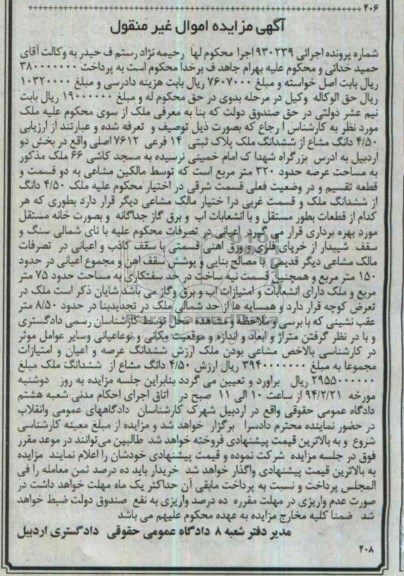 ۴۰۶
آگهی مزایده اموال غیر منقول
شماره پرونده اجرائی ۹۳۰۲۳۹ اجرا محکوم لها رحیمه نژاد رستم ف حیدر به وکالت آقای
حمید خدائی و محکوم علیه بهرام جاهد ف برخدا محکوم است به پرداخت ۳۸۰۰۰۰۰۰۰
ریال بابت اصل خواسته و مبلغ ۷۶۰۷۰۰۰ ریال بابت هزینه دادرسی و مبلغ ۱۰۳۲۰۰۰۰
ریال حق الوکاله وکیل در مرحله بدوی در حق محکوم له و مبلغ ۱۹۰۰۰۰۰۰ ریال بابت
نیم عشر دولتی در حق صندوق دولت که بنا به معرفی ملک از سوی محکوم علیه ملک
مورد نظر به کارشناس ا رجاع که بصورت ذیل توصیف و تعرفه شده و عبارتند از ارزیابی
۴/۵۰ دانگ مشاع از ششدانگ ملک پلاک ثبتی ۱۴ فرعی ۷۶۱۲ اصلی واقع در بخش دو
اردبیل به ادرس بزرگراه شهدا ک امام خمینی نرسیده به مسجد کاشی ۶۶ ملک مذکور
به مساحت عرصه حدود ۳۲۰ متر مربع است که توسط مالکین مشاعی به دو قسمت و
قطعه تقسیم و در وضعیت فعلی قسمت شرقی در اختیار محکوم علیه ملک ۴/۵۰ دانگ
از ششدانگ ملک و قسمت غربی درا ختیار مالک مشاعی دیگر قرار دارد بطوری که هر
کدام از قطعات بطور مستقل و با انشعابات اب و برق گاز جداگانه و بصورت خانه مستقل
مورد بهره برداری قرار می گیرد اعیانی در تصرفات محکوم علیه با تای شمالی سنگ و
سقف شیبدار از خرپای فلزی و ورق اهنی قسمتی با سقف کاذب و اعیانی در تصرفات
مالک مشاعی دیگر قدیمی با مصالح بنایی و پوشش سقف اهن و مجموع اعیانی در حدود
۱۵۰ متر مربع و همچنین قسمت نیه ساخت در حد سفتکاری به مساحت حدود ۷۵ متر
مربع و ملک دارای انشعابات و امتیازات اب و برق و گاز می باشد شایان ذکر است ملک در
تعرض کوچه قرار دارد و همسایه ها از حد شمالی ملک در تجدیدبنا در حدود ۸/۵۰ متر
عقب نشینی که با بررسی و ملاحظه و مشاهده محل توسط کارشناسان رسمی دادگستری
و با در نظر گرفتن متراژ و ابعاد و اندازه و موقعیت مکانی و نوعاعیانی وسایر عوامل موثر
در کارشناسی بالاخص مشاعی بودن ملک ارزش ششدانگ عرصه و اعیان و امتیازات
مجموعا به مبلغ ۳۹۴۰۰۰۰۰۰۰ ریال ارزش ۴/۵۰ دانگ مشاع از ششدانگ ملک مبلغ
۲۹۵۵۰۰۰۰۰۰ ریال براورد و تعیین می گردد بنابراین جلسه مزایده به روز دوشنبه
مورخه ۹۴/۲/۲۱ از ساعت ۱۰ الی ۱۱ صبح در اتاق اجرای احکام مدنی شعبه هشتم
دادگاه عمومی حقوقی واقع در اردبیل شهرک کارشناسان دادگاههای عمومی وانقلاب
در حضور نماینده محترم دادسرا برگزار خواهد شد و مزایده از مبلغ معینه کارشناسی
شروع و به بالاترین قیمت پیشنهادی فروخته خواهد شد طالبین می‌توانند در موعد مقرر
فوق در جلسه مزایده شرکت نموده و قیمت پیشنهادی خودشان را اعلام نمایند مزایده
به بالاترین قیمت پیشنهادی واگذار خواهد شد خریدار باید ده درصد ثمن معامله را فی
المجلس پرداخت و نسبت به پرداخت مابقی آن حداکثر یک ماه مهلت خواهد داشت در
صورت عدم واریزی در مهلت مقرره ده درصد واریزی به نفع صندوق دولت ضبط خواهد
شد ضمنا کلیه مخارج مزایده به عهده محکوم علیهم می باشد
مدیر دفتر شعبه ۸ دادگاه عمومی حقوقی دادگستری اردبیل
۴۰۸